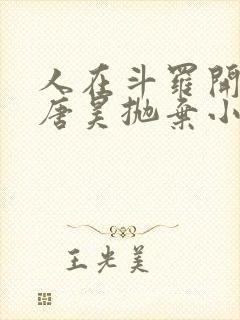 人在斗羅開
唐昊抛棄小
王光美